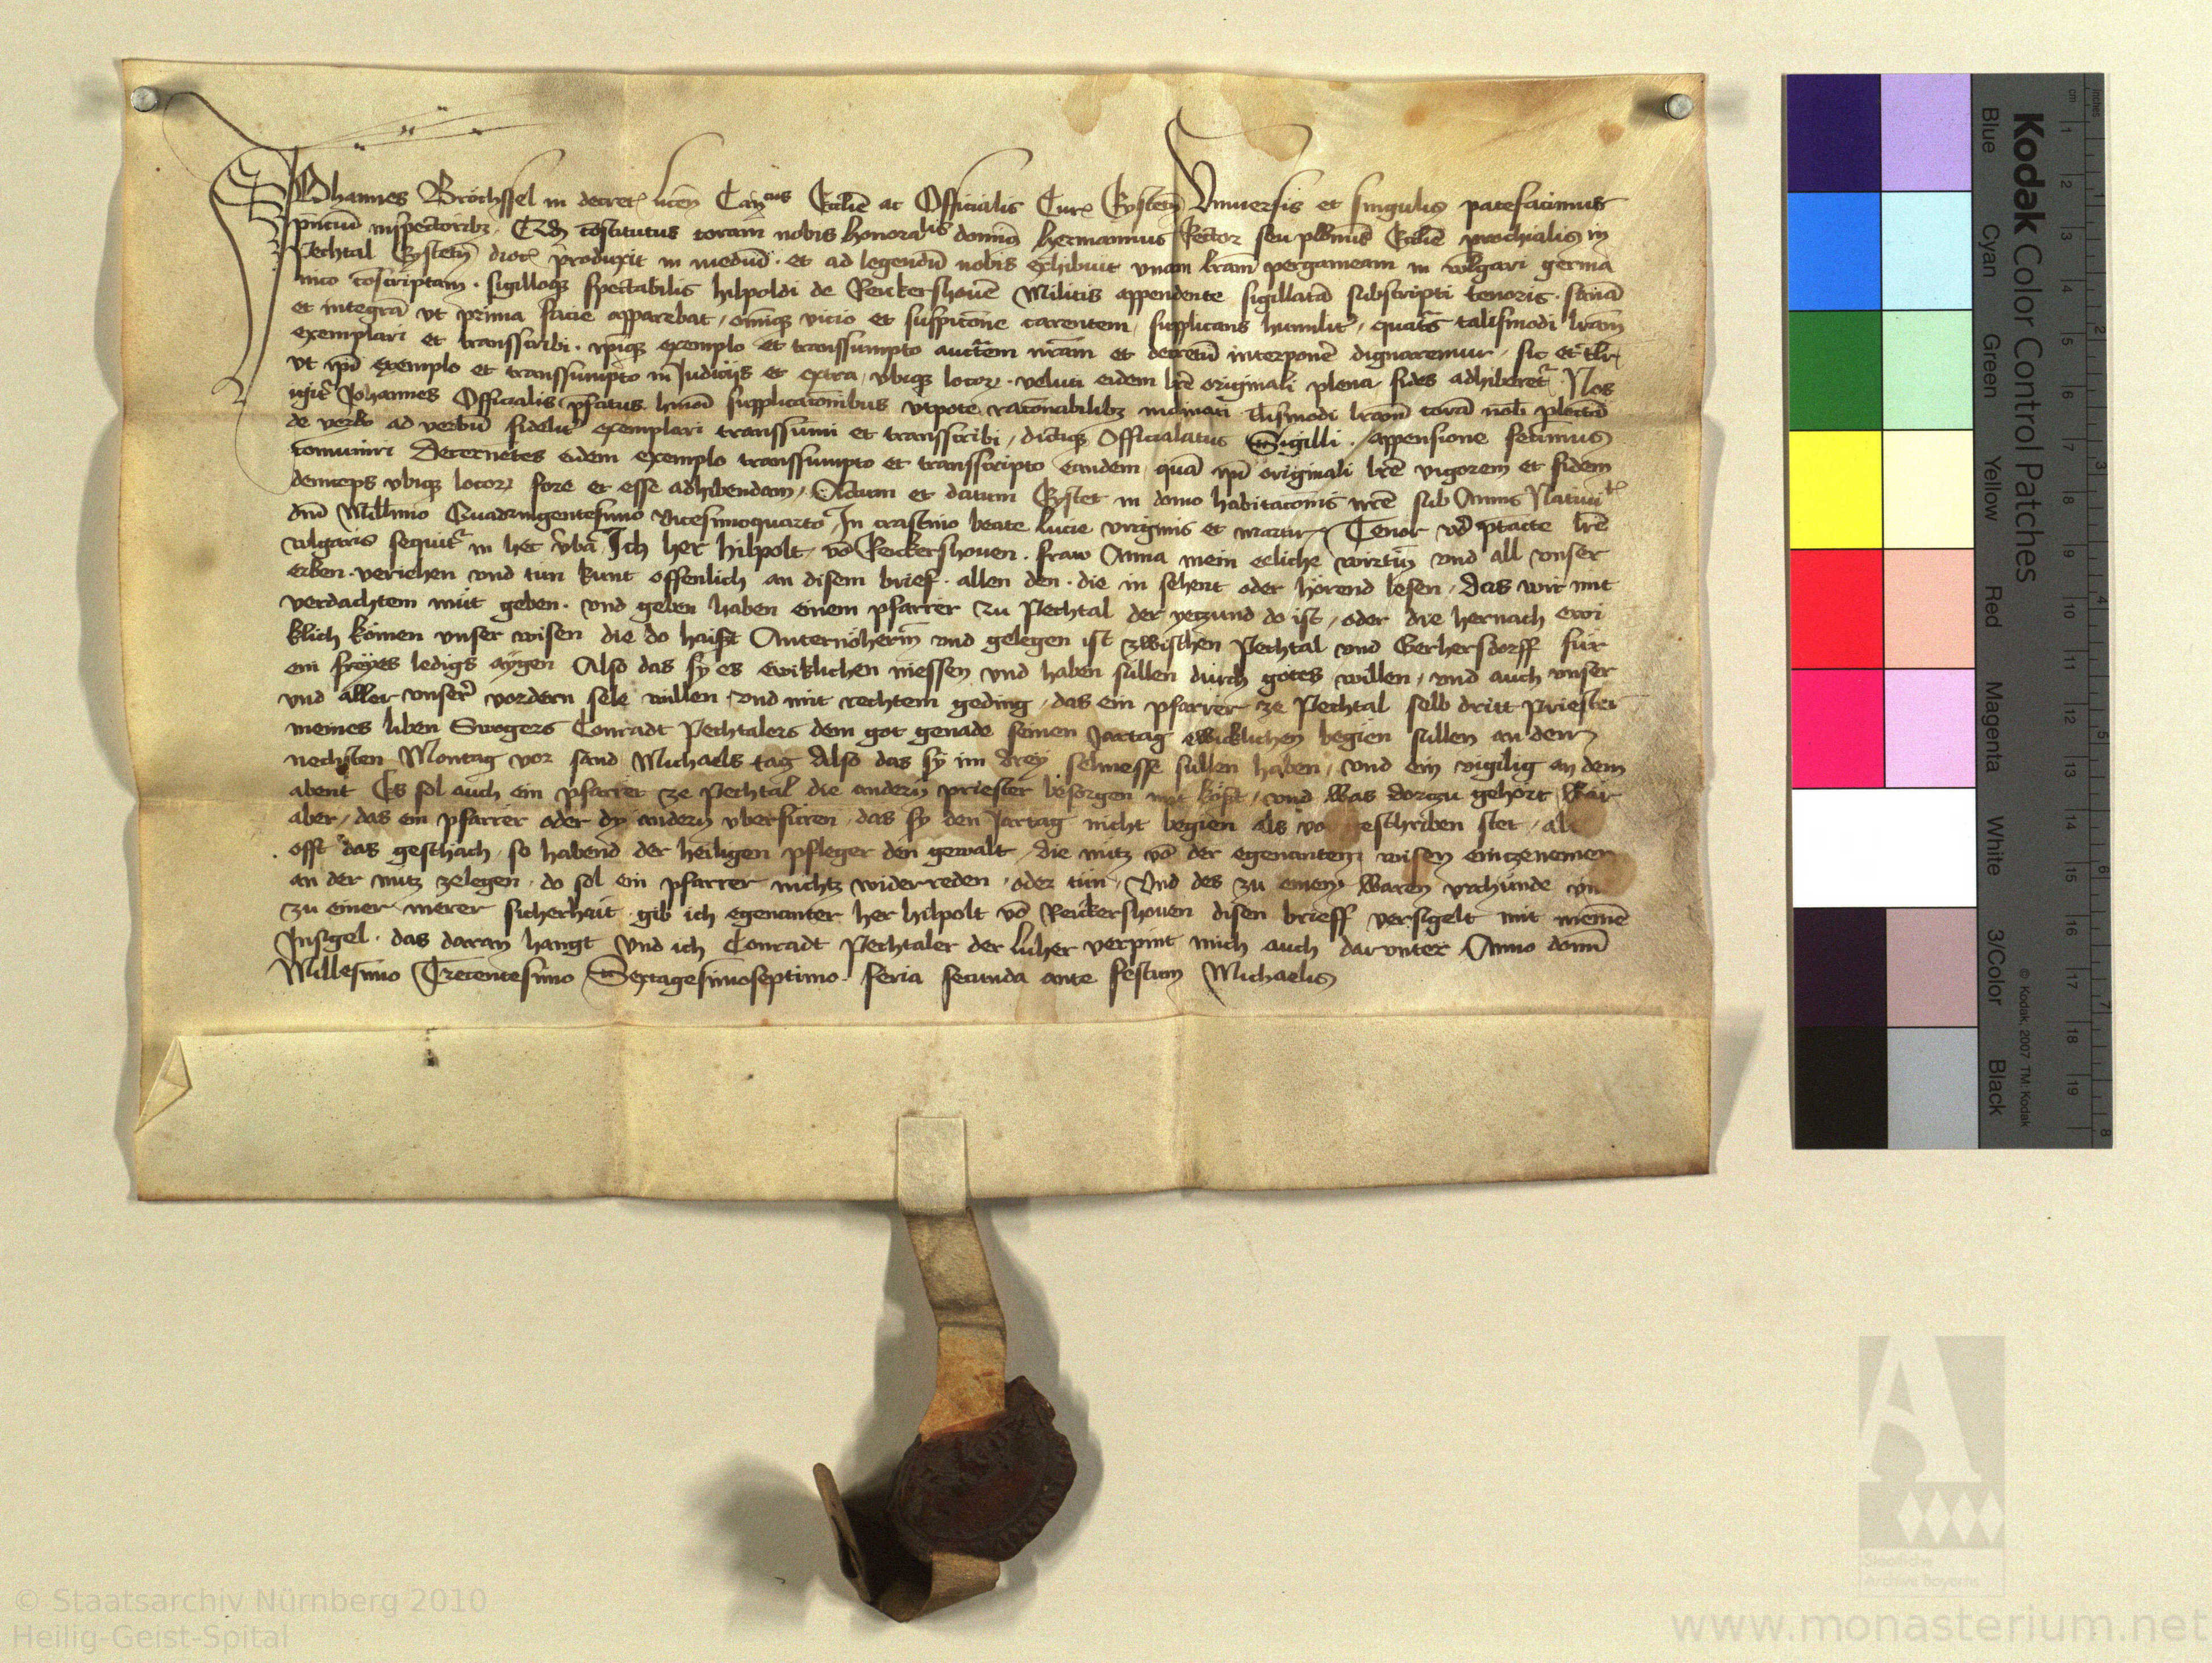 Johannes Bröchssel in decret ličen Canicus Ecclie ac Officialis Cur Eysteten Vniuersis et singulis patefacimus
pñcium inspectoribz, Qd constitutus coram nobis honorabilis dominus hermannus Rector seu plbnus Ecclie prochialis in
Pechtal Eysteten dioc produxit in medium et ad legendum nobis exhibuit vnam lram pergameam in volgari germa
nico conscriptam sigilloqz spectabilis hilpoldi de Reickershouen Militis appendente sigillatam subscripti tenoris sanam
et integram vt prima facie apparebat, omniqz vicio et suspicione carentem, supplicans humilit, quatus talismodi lram
exemplari et transscribi ipsiqz exemplo et transsumpto auctem nram et decretum interponere dignaremur, sic et tlr
vt ipi exemplo et transsumpto in Judicijs et extra, vbiqz locor veluti eidem lre originali plena fides adhiberet Nos
igit Johannes Officialis pfatus hmoi supplicationibus vtpote racionabilibz inclinati tlismodi lram coram nob plectam
de verbo ad verbum fidelit exemplari transsumi et transscribi, dictiqz Officialatus Sigilli appensione fecimus
comuniri Decernetes eidem exemplo transsumpto et transscripto eandem quam ipi originali lre vigorem et fidem
deinceps vbiqz locor fore et esse adhibendam, Actum et datum Eystet in domo habitacionis nre sub Annis Natiuit
dni Millmo Quadringentesimo Vicesimoquarto In crastino beate lucie virginis et martir Tenor vo ptacte lre
volgaris sequit in hec vba Ich her hilpolt vo Reickershouen fraw Anna mein eeliche wirtin vnd all vnser
erben veriehen vnd tun kunt offenlich an disem brief allen den die in sehent oder hörend lesen, das wir mit
verdachtem müt geben vnd geben haben einem pfarrer zu Pechtal der yeczund do ist, oder die hernach ewi
klich komen vnser wisen die do haißt Anternöherin vnd gelegen ist zwischen Pechtal vnd Gerhersdorff für
ein freyes ledigs aygen Also das sy es ewiklichen niessen vnd haben süllen durch gotes willen, vnd auch vnser
vnd aller vnser vordern sele willen vnd mit rechtem geding, das ein pfarrer ze Pechtal selb dritt Priester
meines liben Swogers Conradt Pechtalers dem got genade seinen Jartag ewicklichen begien süllen an dem
nechsten Montag vor sand Michaels tag Also das sy im drey selmesse süllen haben, vnd ein vigilig an dem
abent Es sol auch ein pfarrer ze Pechtal die andern priester besorgen mit kost, vnd was dorczu gehört Wär
aber, das ein pfarrer oder dy andern vberfüren, das sy den Jartag nicht begien als vo geschriben stet, als
offt das geschäch so habend der heiligen pfleger den gewalt, die nutz vo der egenanten wisen einczenemen
an der nutz zelegen, do sol ein pfarrer nichtz widerreden oder tün, Vnd des zu einem waren vrchünde vn
zu einer merer sicherheit gib ich egenanter her hilpolt vo Reickershouen disen brieff versigelt mit meinē
Jnsigel das daran hangt Vnd ich Conradt Pechtaler der luher verpint mich auch darvnter Anno domi
Millesimo Trecentesimo Sextagesimoseptimo feria secunda ante festum Michaelis
Kodak Color Control Patches
Blue Cyan Green Yellow Red Magenta White 3/Color Black
© Kodak, 2007 TM: Kodak
cm 1 2 3 4 5 6 7 8 9 10 11 12 13 14 15 16 17 18 19
inches 1 2 3 4 5 6 7 8
© Staatsarchiv Nürnberg 2010
Heilig-Geist-Spital
Staatliche
Archive Bayerns
www.monasterium.net